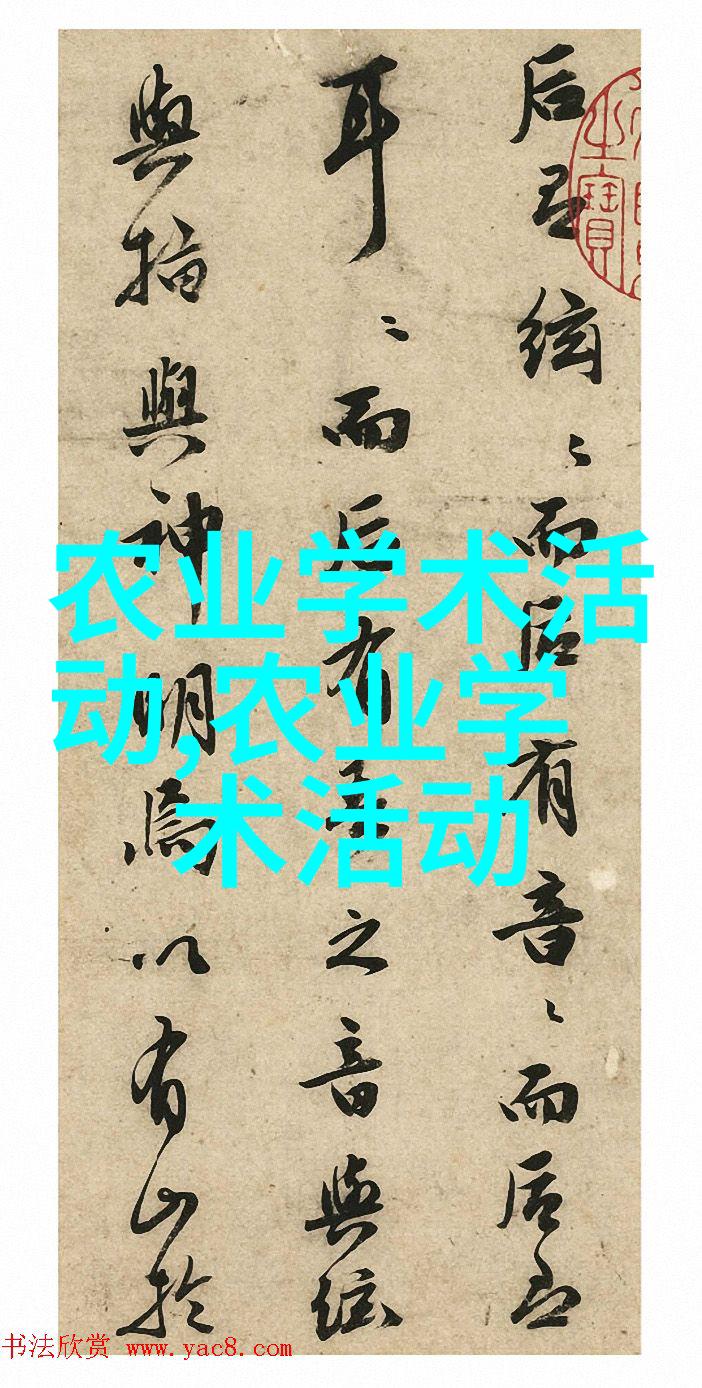 后絃〻而后有音〻而后
耳〻而后有之音與絃
與指與神明焉以有山於
之寶
农业学术活
动,农业学
术活动
书法欣赏 www.yac8.com